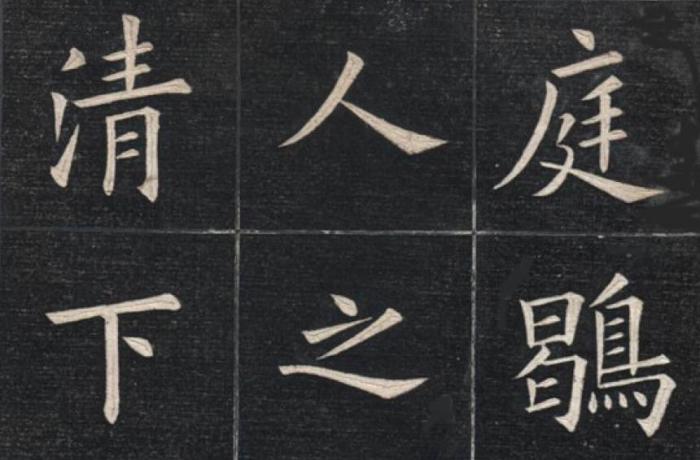 庭鶡
人之
清下